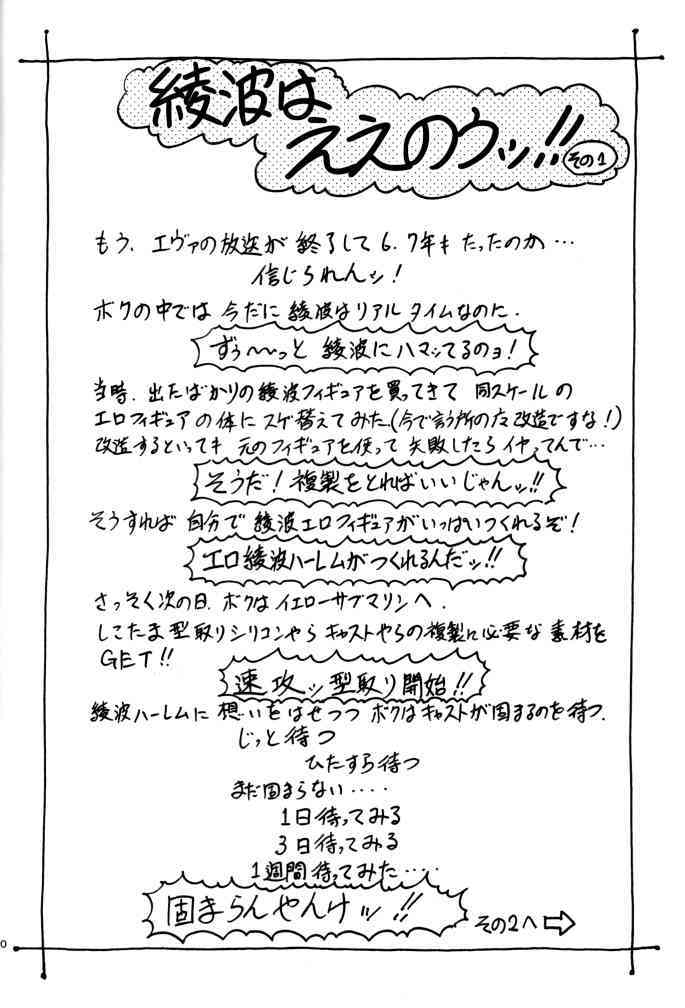 綾波は
ええのウッ!!
その1
もう、エヴァの放送が終了して6.7年もたったのか…
信じられんッ!
ボクの中では今だに綾波はリアルタイムなのに.
ずぅ〜〜っと綾波にハマッてるのョ!
当時、出たばかりの綾波フィギュアを買ってきて同スケールの
エロフィギュアの体にスゲ替えてみた.(今で言う所の左改造ですな!)
改造するといっても元のフィギュアを使って失敗したらイヤ、てんで…
そうだ!複製をとればいいじゃんッ!!
そうすれば自分で綾波エロフィギュアがいっぱいつくれるぞ!
エロ綾波ハーレムがつくれるんだッ!!
さっそく次の日.ボクはイエローサブマリンへ.
しこたま型取りシリコンやらキャストやらの複製に必要な素材を
GET!!
速攻ッ型取り開始!!
綾波ハーレムに想いをはせつつボクはキャストが固まるのを待つ.
じっと待つ
ひたすら待つ
まだ固まらない‥‥
1日待ってみる
3日待ってみる
1週間待ってみた‥‥
固まらんやんけッ!!
その2へ⇨
0